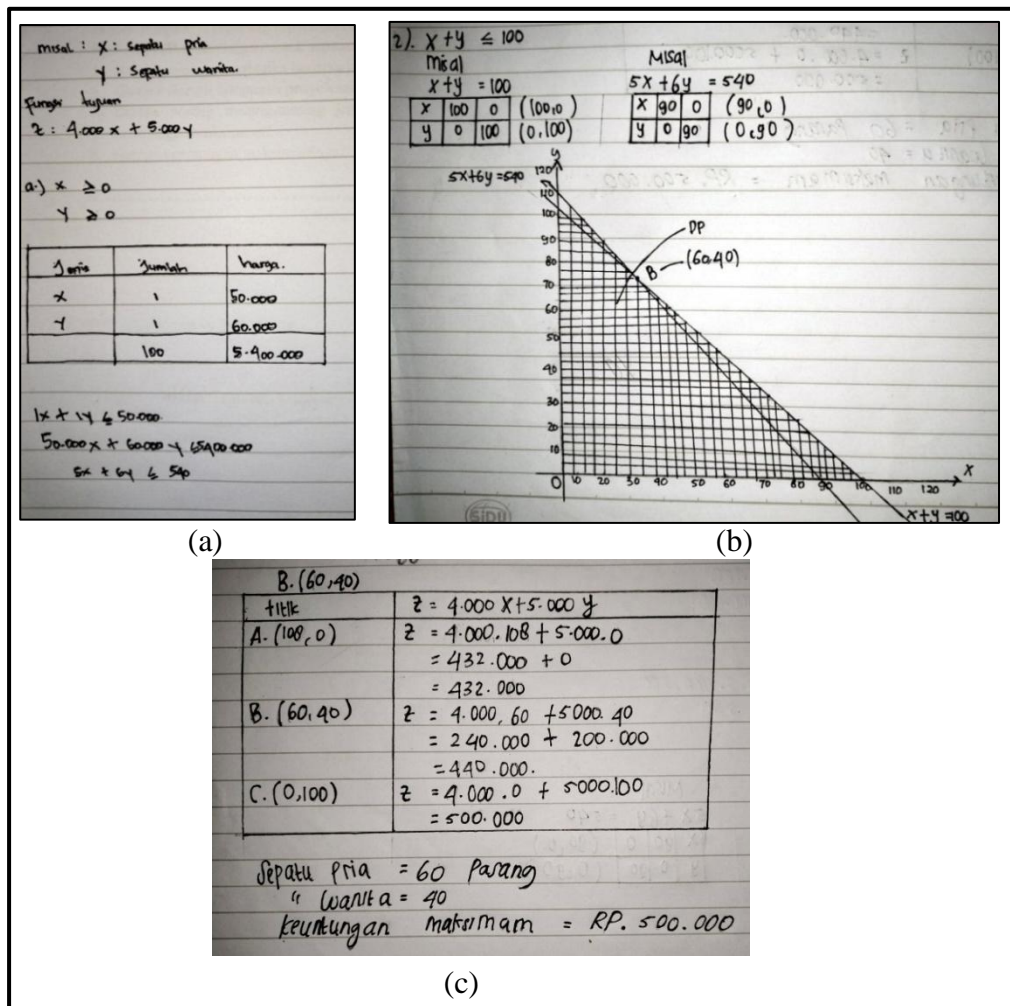 misal : x : sepatu pria
y : sepatu wanita.
fungsi tujuan
z : 4.000 x + 5.000 y
a.) x ≥ 0
y ≥ 0
Jenis Jumlah harga.
x 1 50.000
y 1 60.000
100 5.400.000
1x + 1y ≤ 50.000
50.000x + 60.000 y ≤ 5400.000
5x + 6y ≤ 540
(a)
2). x + y ≤ 100
Misal
x + y = 100
x 100 0 (100,0)
y 0 100 (0,100)
Misal
5x + 6y = 540
x 90 0 (90,0)
y 0 90 (0,90)
y
5x+6y=540
120
110
100
90
80
70
60
50
40
30
20
10
DP
B (60,40)
0 10 20 30 40 50 60 70 80 90 100 110 120 x
x+y=100
SIDU
(b)
B. (60,40)
titik z = 4.000 x + 5.000 y
A. (108,0) z = 4.000.108 + 5.000.0
= 432.000 + 0
= 432.000
B. (60,40) z = 4.000.60 + 5000.40
= 240.000 + 200.000
= 440.000.
C. (0,100) z = 4.000.0 + 5000.100
= 500.000
Sepatu Pria = 60 Pasang
" Wanita = 40
Keuntungan maksimam = RP. 500.000
(c)